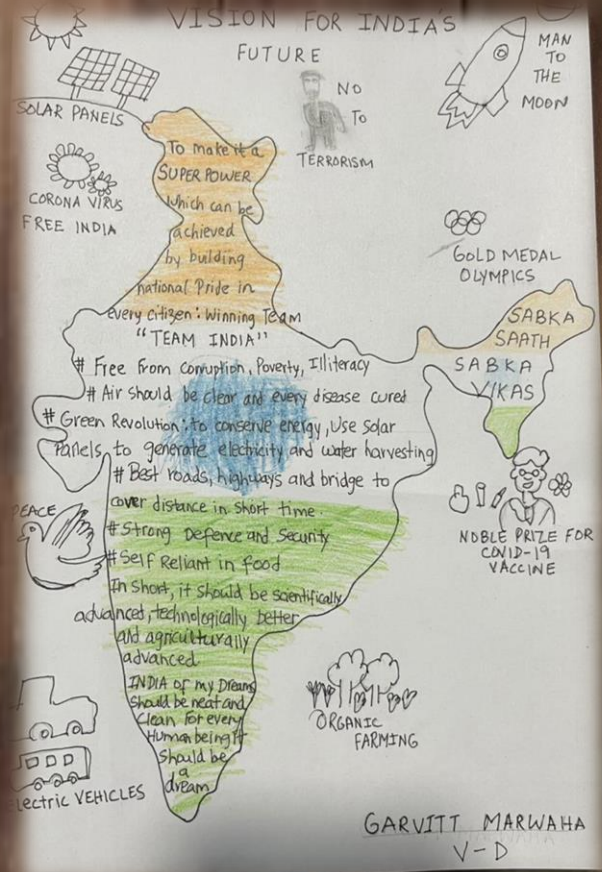 VISION FOR INDIA'S
FUTURE
MAN
TO
THE
MOON
NO
TO
TERRORISM
SOLAR PANELS
CORONA VIRUS
FREE INDIA
To make it a
SUPER POWER
which can be
achieved
by building
national Pride in
every citizen: Winning Team
"TEAM INDIA"
GOLD MEDAL
OLYMPICS
SABKA
SAATH
SABKA
VIKAS
# Free from corruption, Poverty, Illiteracy
# Air should be clear and every disease cured
# Green Revolution: to conserve energy, Use Solar
Panels to generate electricity and water harvesting
# Best roads, highways and bridge to
cover distance in short time.
# Strong Defence and Security
# Self Reliant in food
In Short, it should be scientifically
advanced, technologically better
and agriculturally
advanced
INDIA of my Dreams
should be neat and
clean for every
Human being It
should be
a
dream
PEACE
NOBLE PRIZE FOR
COVID-19
VACCINE
ORGANIC
FARMING
Electric VEHICLES
GARVITT MARWAHA
V-D